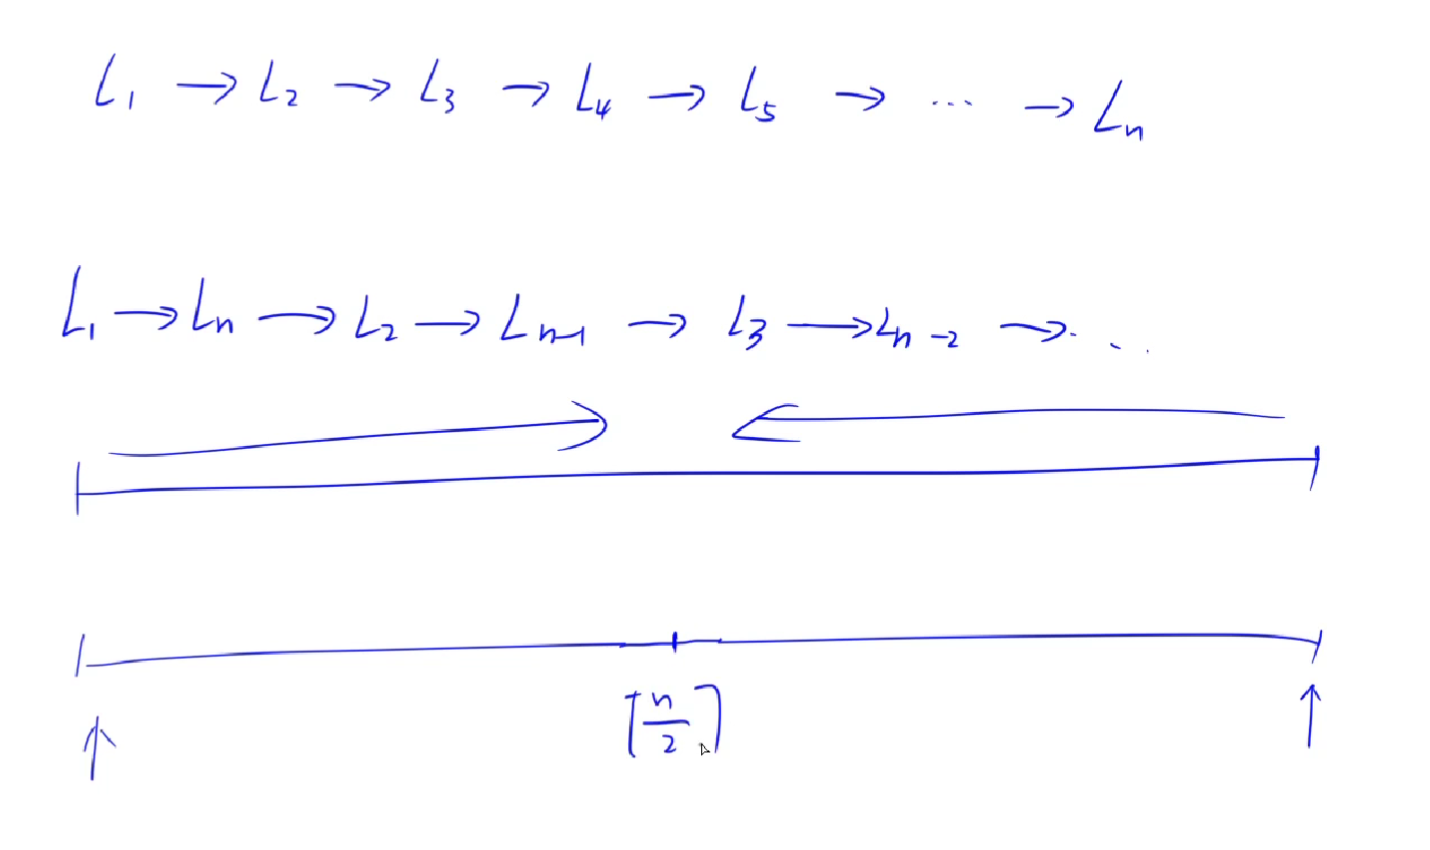 L₁ → L₂ → L₃ → L₄ → L₅ → ... → Lₙ
L₁ → Lₙ → L₂ → Lₙ₋₁ → L₃ → Lₙ₋₂ → ...
⌈n/2⌉